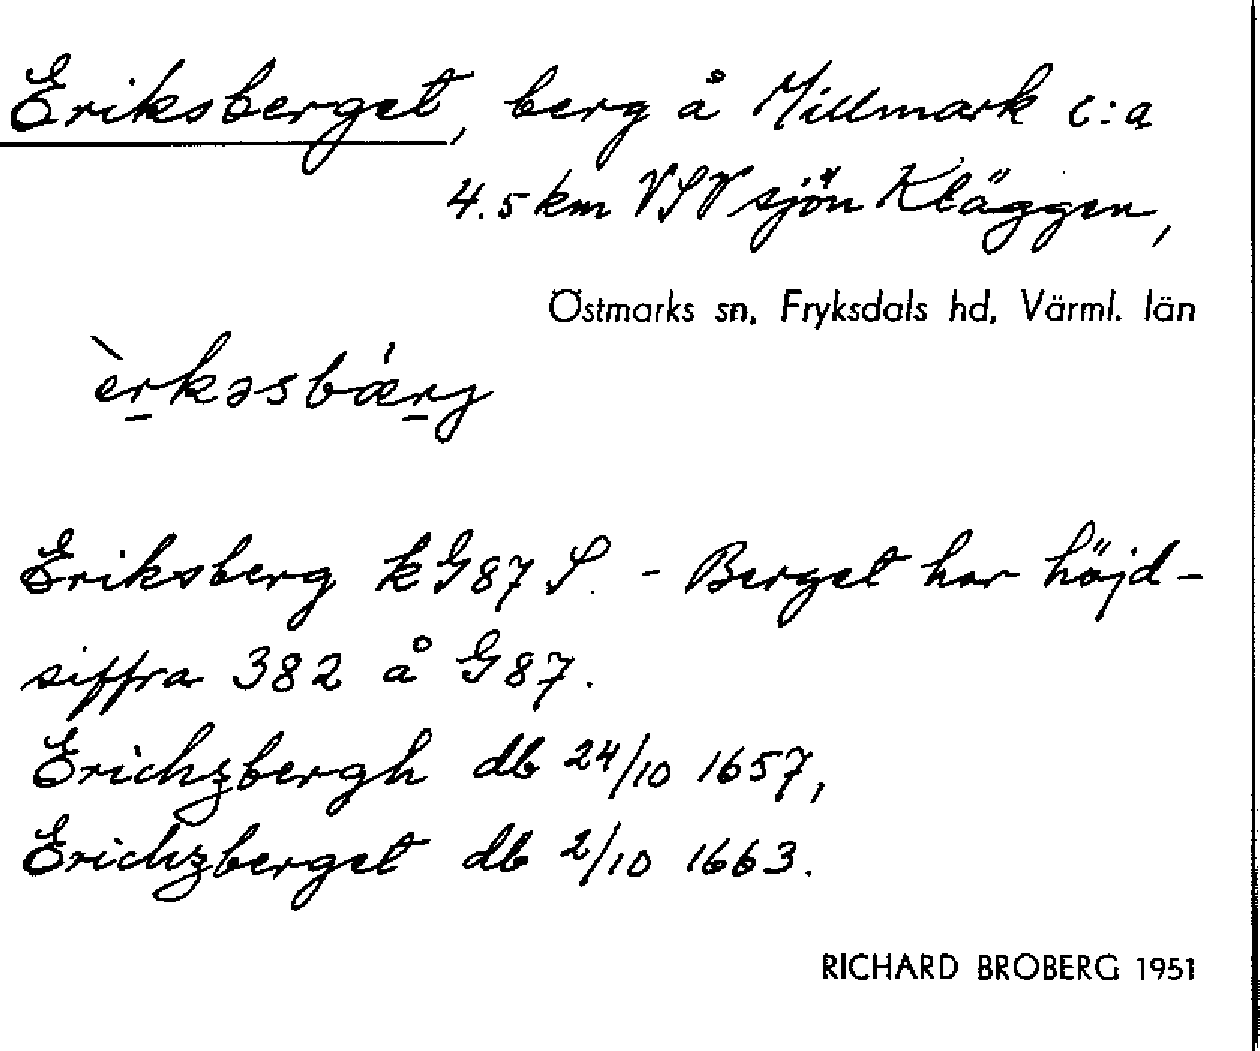 Eriksberget, berg å Millmark c:a
4.5 km VSV sjön Kläggen,
Östmarks sn, Fryksdals hd, Värml. län
èrkəsbǽrj
Eriksberg k G87 S. - Berget har höjd-
siffra 382 å G87.
Erichzbergh db 24/10 1657,
Erichzberget db 2/10 1663.
RICHARD BROBERG 1951